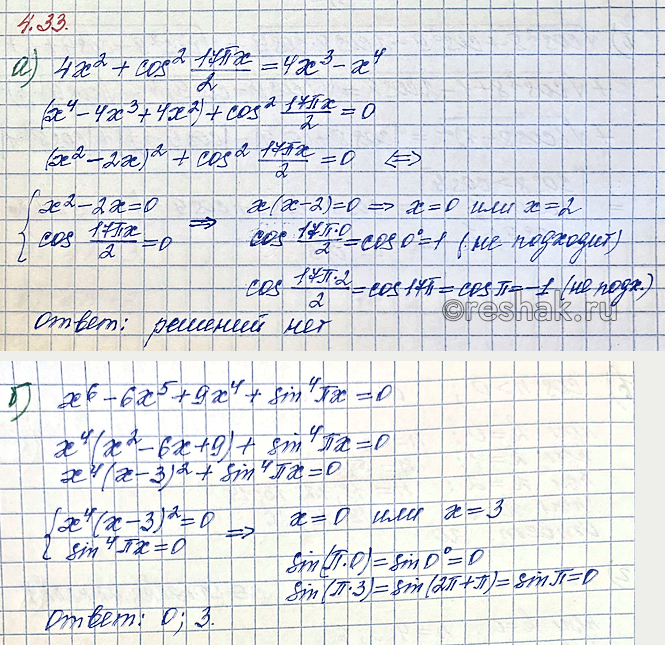 4.33.
а) 4x² + cos² 17πx/2 = 4x³ - x⁴
(x⁴ - 4x³ + 4x²) + cos² 17πx/2 = 0
(x² - 2x)² + cos² 17πx/2 = 0 ⇔
{ x² - 2x = 0 ⇒ x(x-2) = 0 ⇒ x = 0 или x = 2
cos 17πx/2 = 0 cos 17π·0/2 = cos 0° = 1 (не подходит)
cos 17π·2/2 = cos 17π = cos π = -1 (не подх.)
Ответ: решений нет
©reshak.ru
б) x⁶ - 6x⁵ + 9x⁴ + sin⁴ πx = 0
x⁴(x² - 6x + 9) + sin⁴ πx = 0
x⁴(x-3)² + sin⁴ πx = 0
{ x⁴(x-3)² = 0 ⇒ x = 0 или x = 3
sin⁴ πx = 0
sin(π·0) = sin 0° = 0
sin(π·3) = sin(2π+π) = sin π = 0
Ответ: 0; 3.